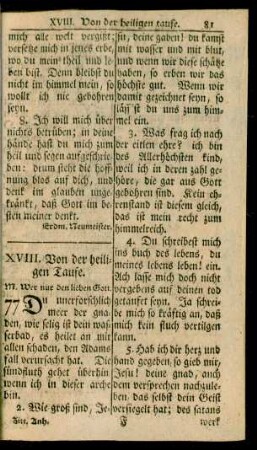 XVIII. Von der heiligen taufe. 81
mich alle welt vergißt;
versetze mich in jenes erbe,
wo du mein theil und le-
ben bist. Denn bleibst du
nicht im himmel mein, so
wollt ich nie gebohren
seyn.
8. Ich will mich über
nichts betrüben; in deine
hände hast du mich zum
heil und segen aufgeschrie-
ben: drum sieht die hoff-
nung blos auf dich, und
denkt im glauben unge-
kränkt, daß Gott im be-
sten meiner denkt.
Erdm. Neumeister.
XVIII. Von der heili-
gen Taufe.
M. Wer nur den lieben Gott.
77 Du unerforschlich
meer der gna-
den, wie selig ist dein was-
serbad, es heilet an mir
allen schaden, den Adams
fall verursacht hat. Die
sündfluth gehet überhin
wenn ich in dieser arche
bin.
2. Wie groß sind, Je-
Fut. Anh.
su, deine gaben! du kamst
mit wasser und mit blut,
und wenn wir diese schätze
haben, so erben wir das
höchste gut. Wenn wir
damit gezeichnet seyn, so
läßt du uns zum him-
mel ein.
3. Was frag ich nach
der eitlen ehre? ich bin
des Allerhöchsten kind,
weil ich in deren zahl ge-
höre, die gar aus Gott
gebohren sind. Kein eh-
renstand ist diesem gleich,
das ist mein recht zum
himmelreich.
4. Du schreibest mich
ins buch des lebens, du
meines lebens leben! ein.
Ach lasse mich doch nicht
vergebens auf deinen tod
getaufet seyn. Ja schrei-
be mich so kräftig an, daß
mich kein fluch vertilgen
kann.
5. Hab ich dir herz und
hand gegeben, so gieb mir,
Jesu! deine gnad, auch
dem versprechen nachzule-
ben, das selbst dein Geist
versiegelt hat; des satans
F werk